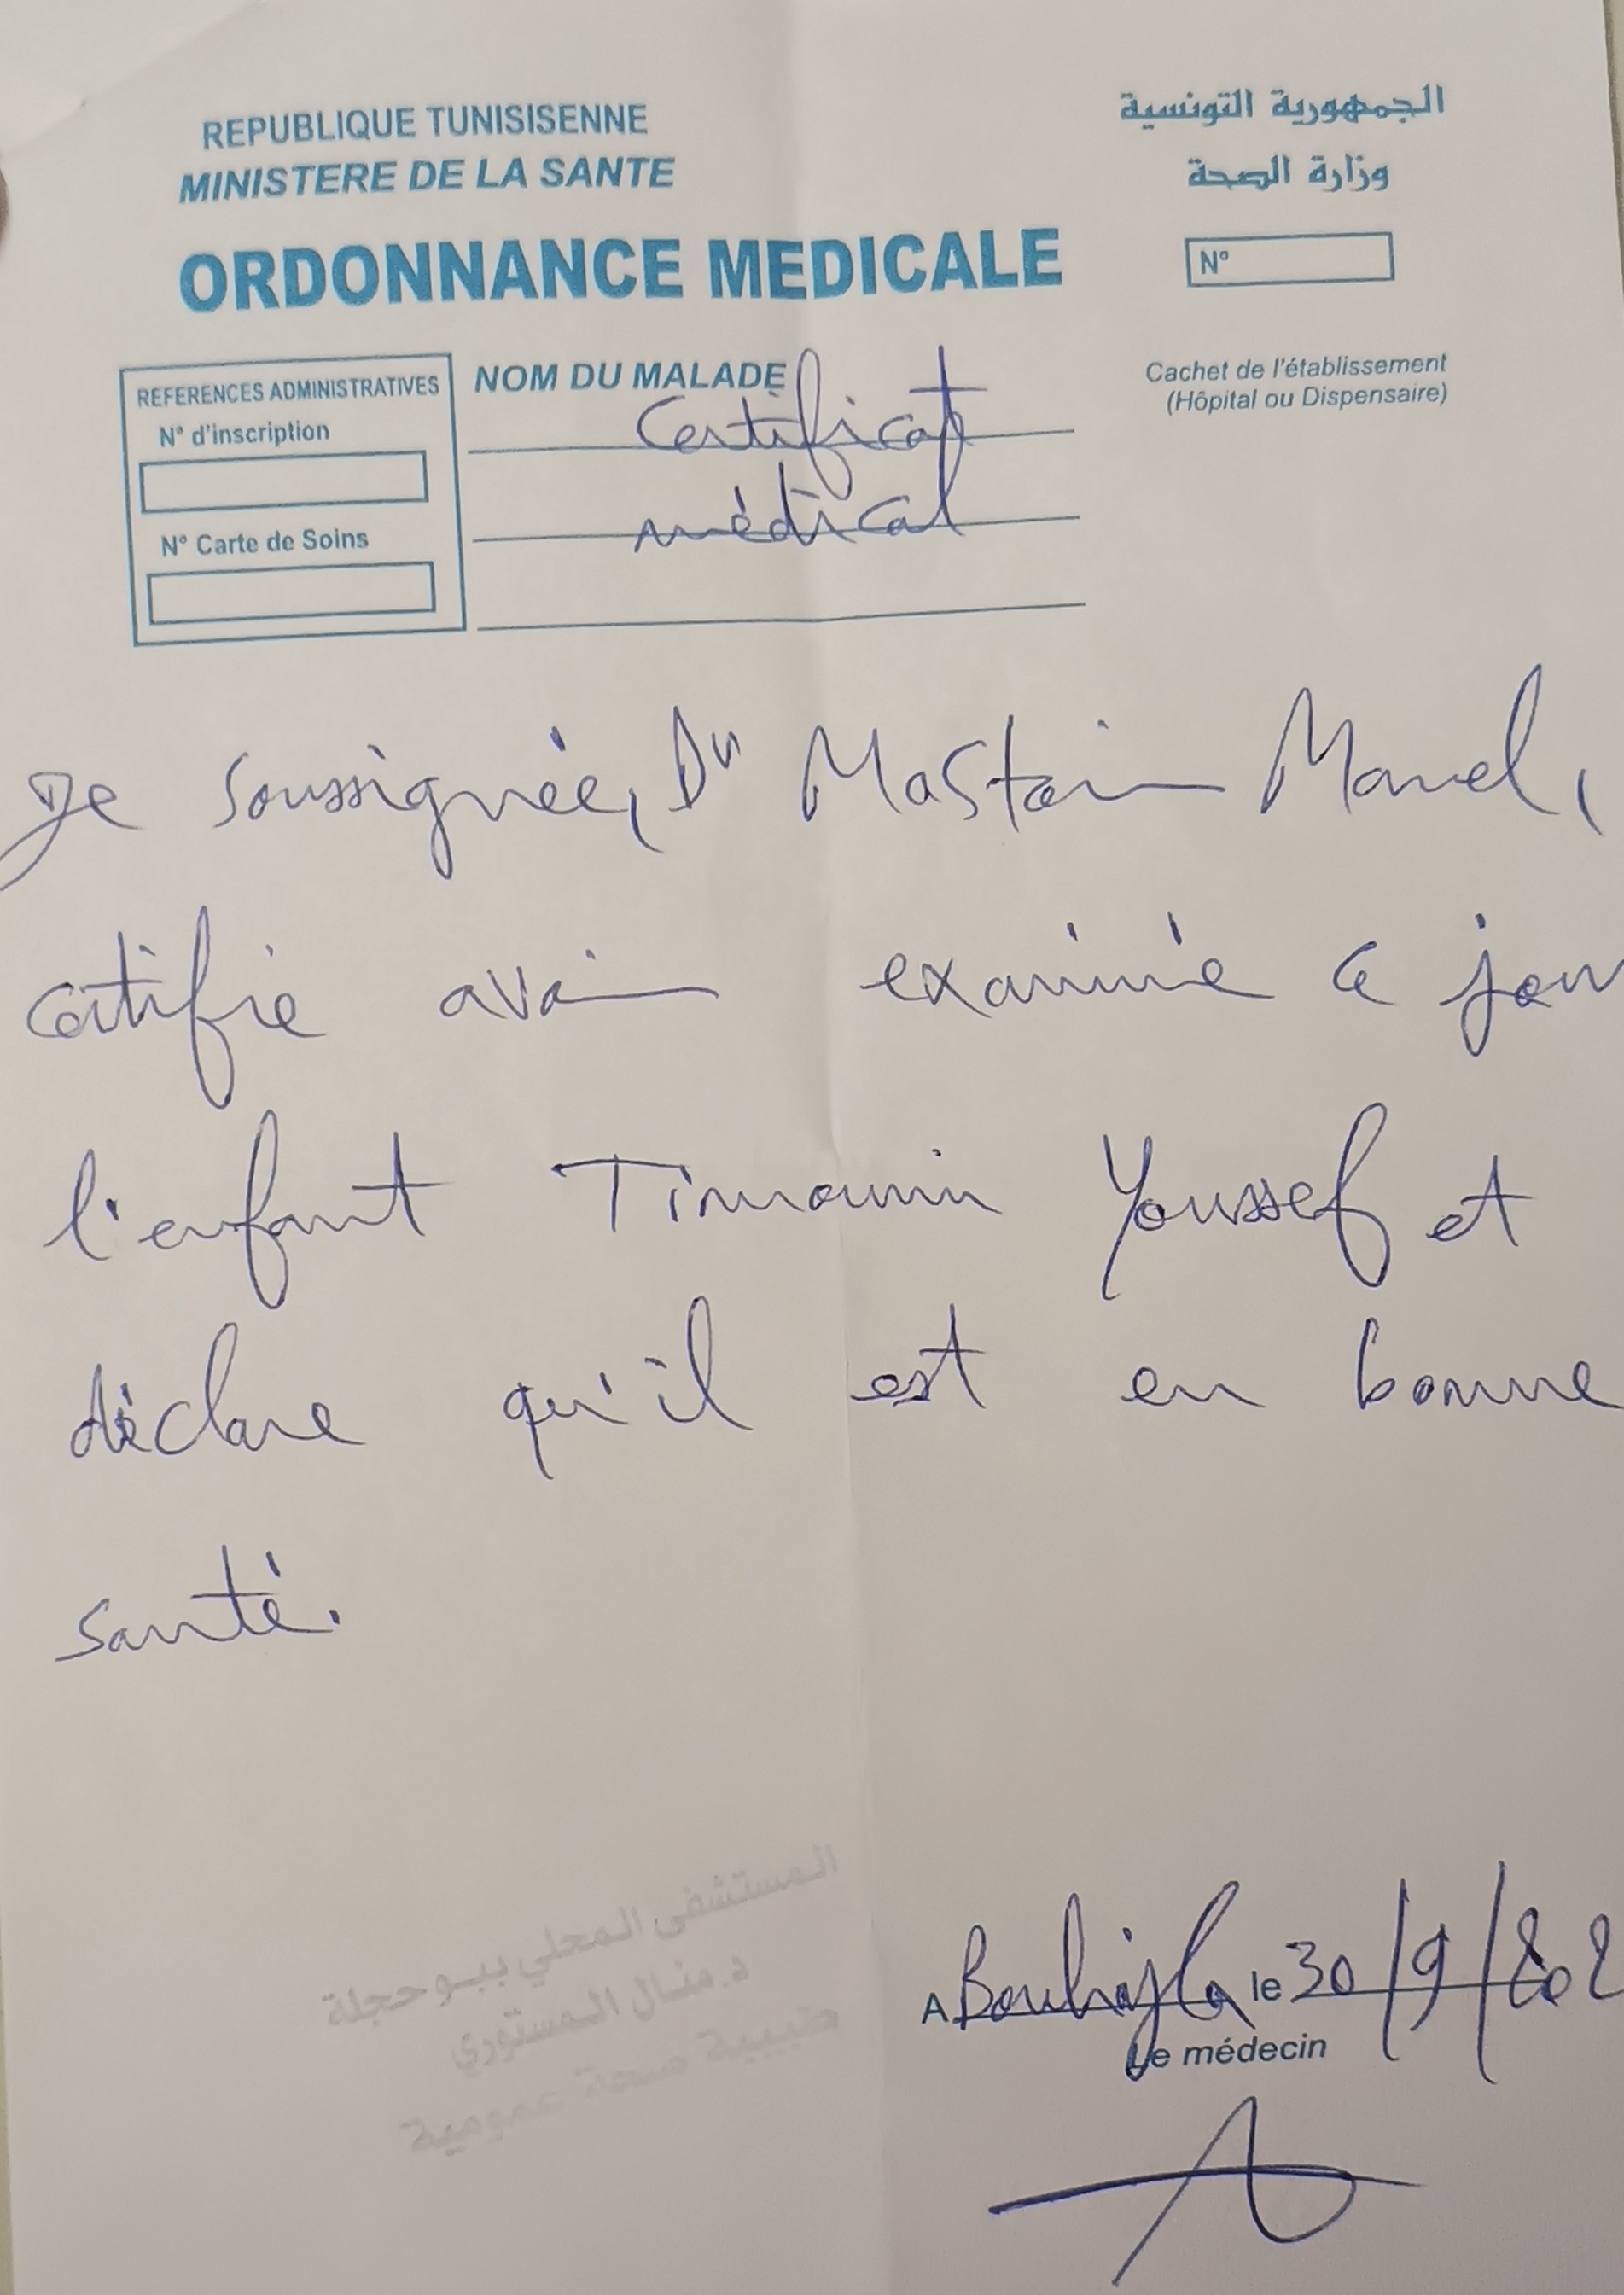 REPUBLIQUE TUNISISENNE
MINISTERE DE LA SANTE
الجمهورية التونسية
وزارة الصحة
ORDONNANCE MEDICALE
N°
REFERENCES ADMINISTRATIVES
N° d'inscription
N° Carte de Soins
NOM DU MALADE
Certificat
médical
Cachet de l'établissement
(Hôpital ou Dispensaire)
Je soussignée, Dr Mastouri Manel,
certifie avoir examiné ce jour
l'enfant Timoumi Youssef et
déclare qu'il est en bonne
santé.
المستشفى المحلي ببوحجلة
د.منال المستوري
طبيبة صحة عمومية
A Bouhajla le 30/9/202
Le médecin